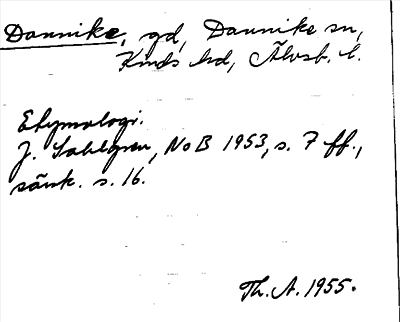 Dannike, gd, Dannike sn,
Kinds hd, Älvsb. l.
Etymologi:
J. Sahlgren, NoB 1953, s. 7 ff.,
särsk. s. 16.
Th. A. 1955.